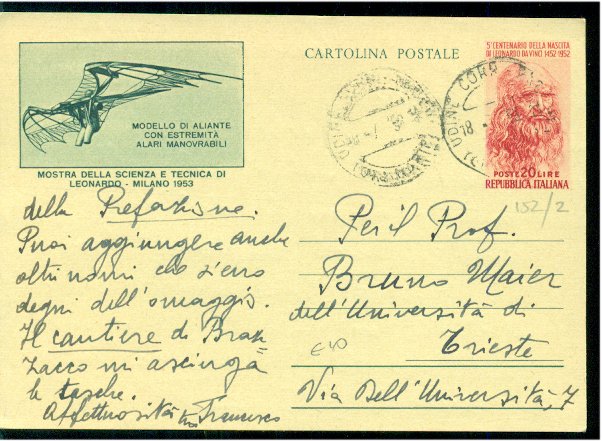 CARTOLINA POSTALE
5° CENTENARIO DELLA NASCITA
DI LEONARDO DA VINCI 1452-1952
UDINE CORR
18
POSTE 20 LIRE
REPUBBLICA ITALIANA
152/2
MODELLO DI ALIANTE
CON ESTREMITÀ
ALARI MANOVRABILI
MOSTRA DELLA SCIENZA E TECNICA DI
LEONARDO - MILANO 1953
della Prefazione.
Puoi aggiungere anche
altri nomi che siano
degni dell'omaggio.
Il cantiere di Braz=
zacco mi asciuga
le tasche.
Affettuosità tuo Francesco
Per il Prof.
Bruno Maier
dell'Università di
Trieste
Via Dell'Università, 7
€40